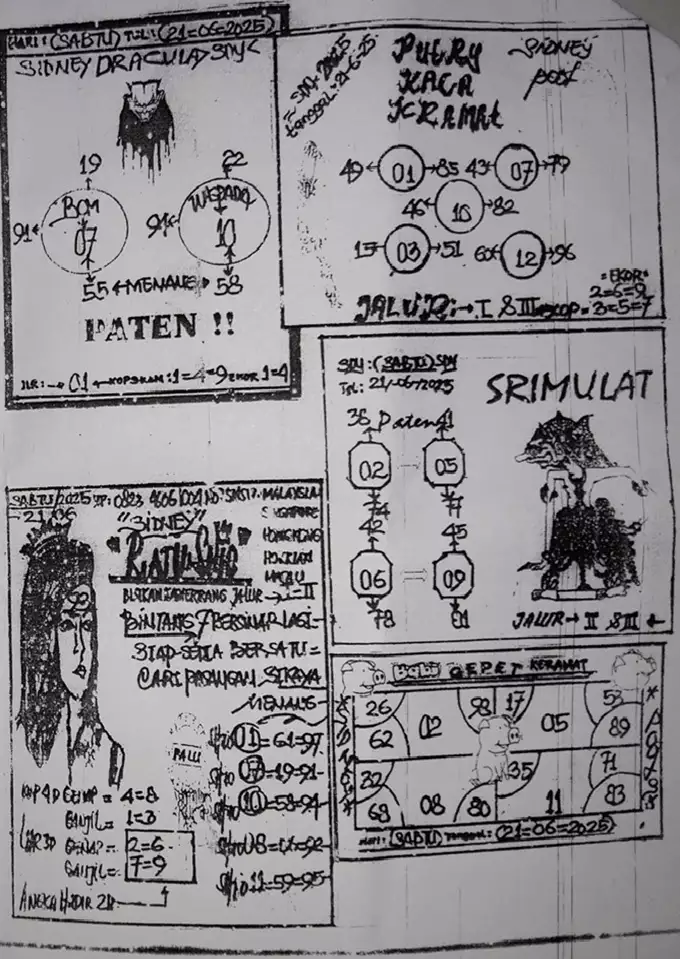 HARI : (SABTU) TGL : (21=06=2025)
SIDNEY DRACULA SDY
19
22
BOM
WASPADA
91
07
94
10
55 MENANG 58
PATEN !!
JLR : → 01 KOP : 1=4=9 EKOR 1=4
SDY 2025
tanggal : 21-6-25
PUTRY
KACA
KRAMAT
SIDNEY
pool
49 01 85 43 07 79
46 10 82
15 03 51 60 12 96
= EKOR =
2=6=9
JALUR : → I & III KOP = 3=5=7
SDY : (SABTU) SDY
TGL : 21/06/2025
SRIMULAT
38 Paten 41
02 05
74 77
42 45
06 = 09
78 81
JALUR → II & III
SABTU 2025 HP : 0823
21 06
MALAYSIA
SINGAPORE
HONGKONG
"SIDNEY"
RATU
MACAU
JALUR → I - II
BINTANG 7 BERSINAR LAGI =
SIAP SETIA BERSATU =
CARI PASANGAN SIKAYA
MENANG
PALU
Shio 01 = 61=97
Shio 07 = 19=91
Shio 10 = 58=94
Shio 08
Shio 11 = 59=95
KOP 4D GENAP = 4=8
GANJIL = 1=3
GENAP = 2=6
GANJIL = 7=9
ANGKA HADIR 2D
BABI GEPET KERAMAT
26 02 98 17 05 53
62 89
32 35 71
68 08 80 11 83
HARI : (SABTU) TANGGAL : (21=06=2025)